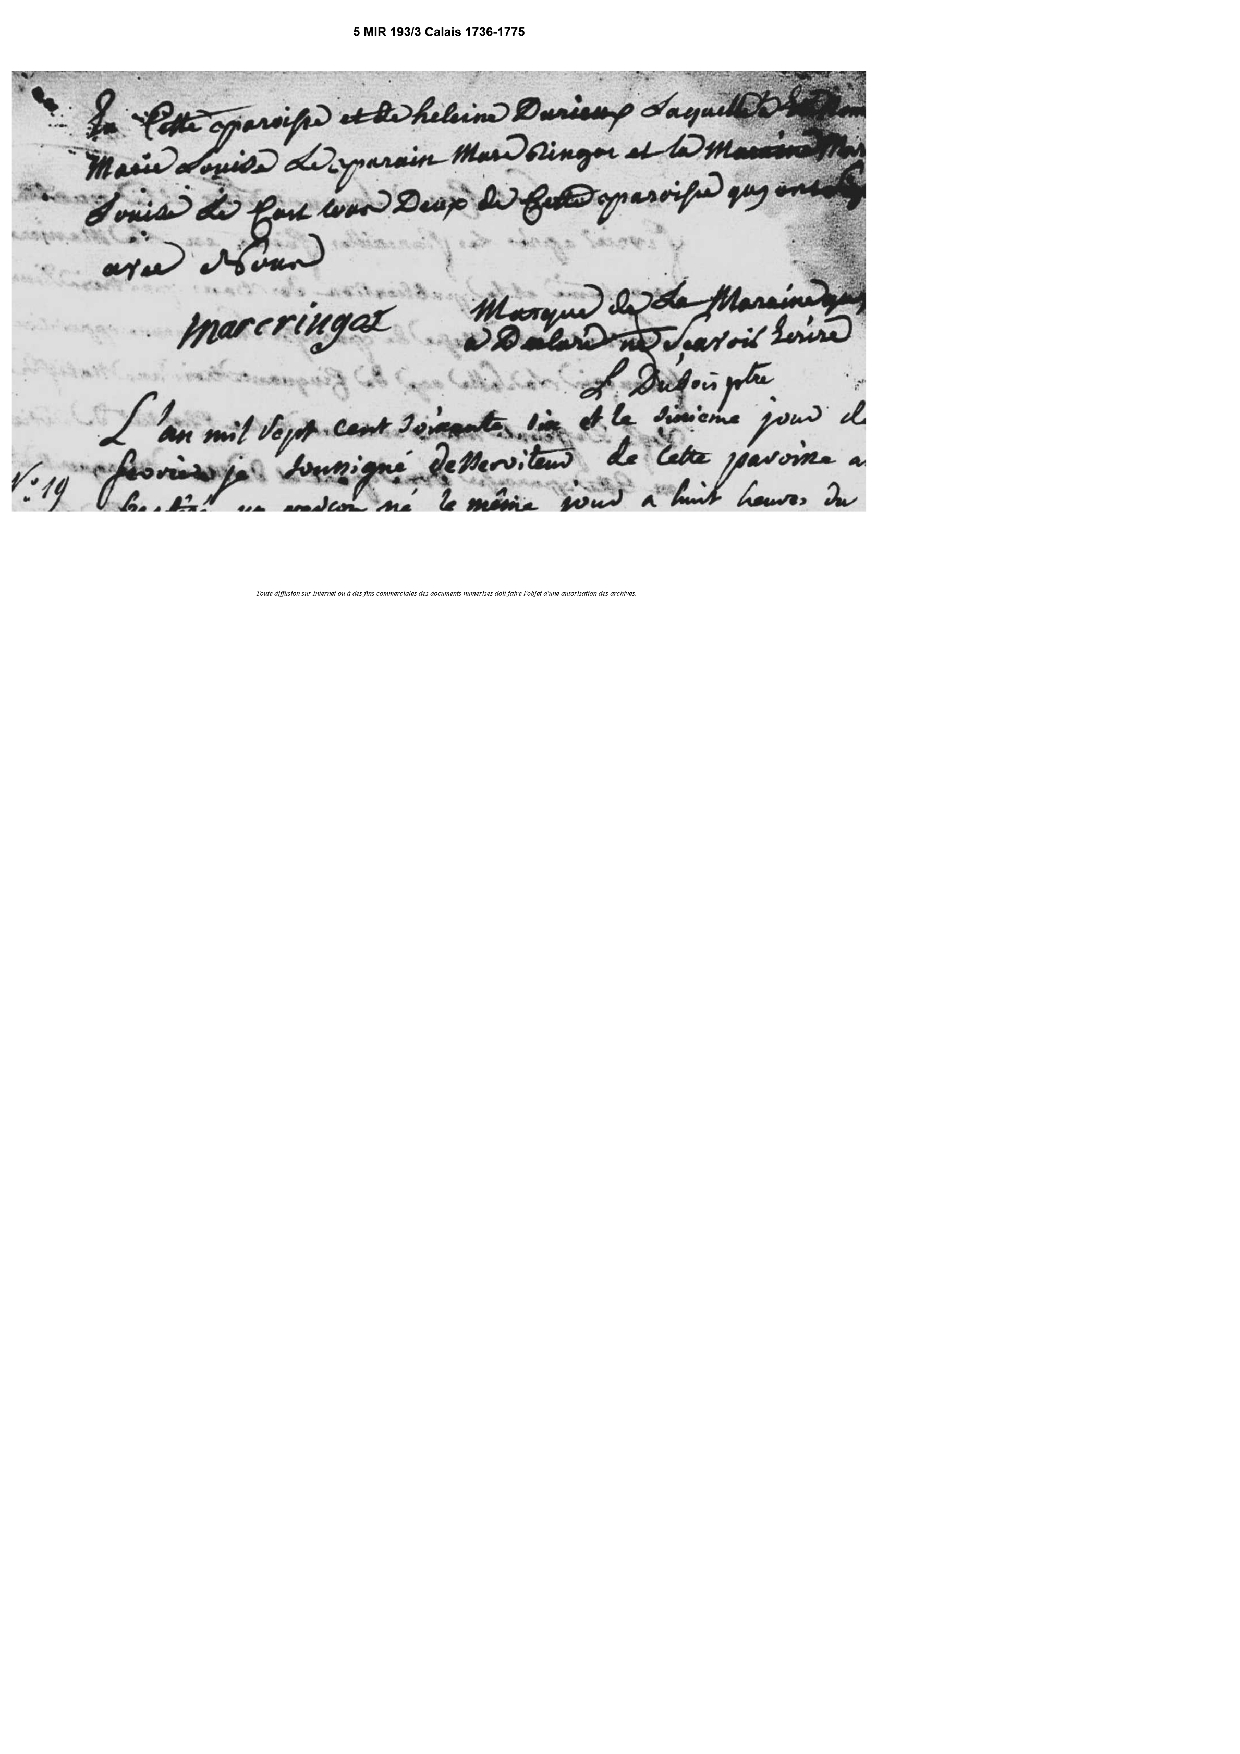 5 MIR 193/3 Calais 1736-1775
En Cette paroisse et de heleine Durieux Laquelle a
Marie Louise Le parain Marc Ringot et la Maraine Mar
Louise Le tous Deux de Cette paroisse quy ont
avec Nous
marc ringot
Marque de La Maraine quy
a Declaré ne Scavoir Ecrire
L Dubois ptre
L'an mil sept cent soixante six et le sixieme jour de
N° 19
fevrier je soussigné desserviteur de cette paroisse a
baptisé un garcon né le même jour a huit heures du
Toute diffusion sur Internet ou à des fins commerciales des documents numérisés doit faire l'objet d'une autorisation des archives.